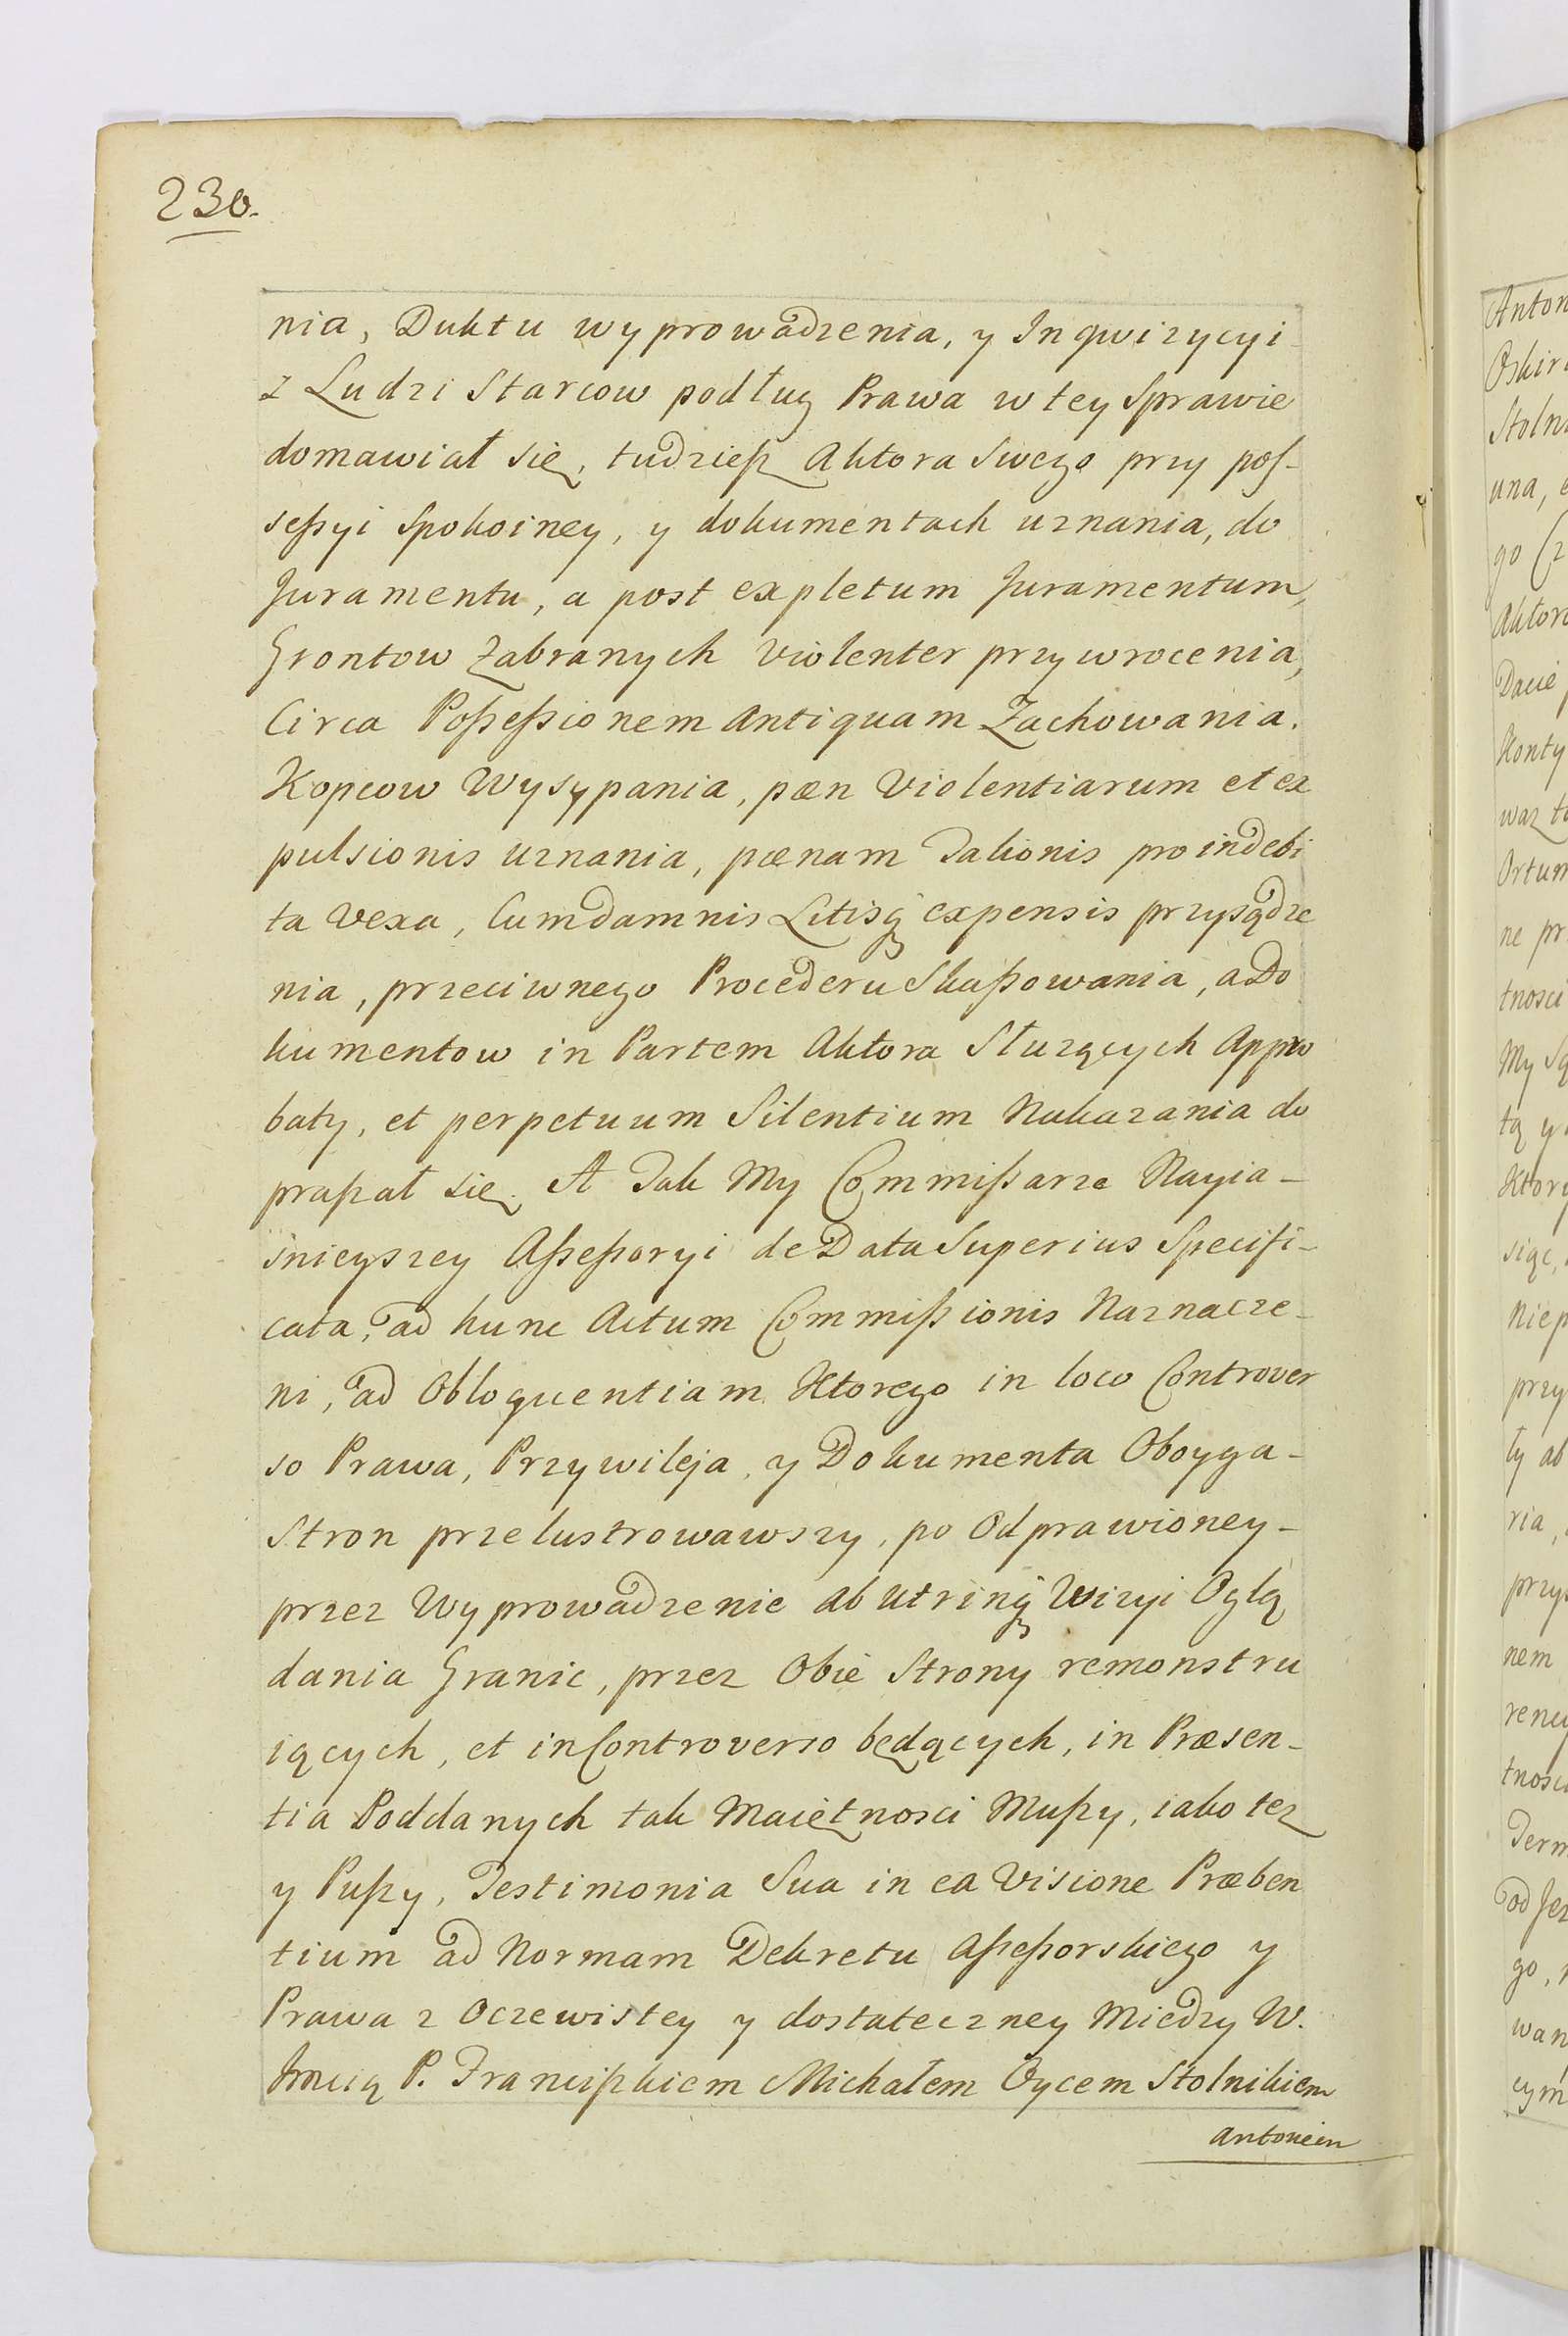 230.
nia, Duktu wyprowadzenia, y Inqwizycyi
z Ludzi Starcow podług Prawa w tey Sprawie
domawiał się, tudziesz Aktora Swego przy pos-
sessyi Spokoiney, y dokumentach uznania, do
Juramentu, a post expletum Juramentum,
Grontow Zabranych violenter przywrocenia,
Circa Possessionem Antiquam Zachowania.
Kopcow Wysypania, pæn Violentiarum et ex
pulsionis uznania, pænam Talionis pro indebi
ta vexa, Cum damnis Litisq3 expensis przysądze
nia, przeciwnego Procederu Skassowania, a Do
kumentow in Partem Aktora Słuzących Appro
baty, et perpetuum Silentium Nakazania do
praszał się. A Tak My Commissarze Nayia-
snieyszey Assessoryi de Data Superius Specifi-
cata, ad hunc Actum Commissionis Naznacze-
ni, ad Obloquentiam Ktorego in loco Controver
so Prawa, Przywileja, y Dokumenta Oboyga-
Stron przelustrowawszy, po Odprawioney-
przez Wyprowadzenie ab utrinq3 Wizyi Oglą
dania Granic, przez Obie Strony remonstru
iących, et in Controverso będących, in Præsen-
tia Poddanych tak Maiętnosci Muszy, iako tez
y Puszy, Testimonia Sua in ea Visione Præben
tium ad Normam Dekretu Assessorskiego y
Prawa z Oczewistey y dostateczney Miedzy W.
Jmcią P. Franciszkiem Michałem Oycem Stolnikiem
Antoniem
Anton
Stoln
una,
go (z
Aktor
Dacie
Konty
waz
Ortum
ne pr
tnosci
My Są
tą y
Ktory
siąc,
Niep
przy
ty ab
ria,
przys
nem
tnosci
Term
od Jez
go,
wan
cym